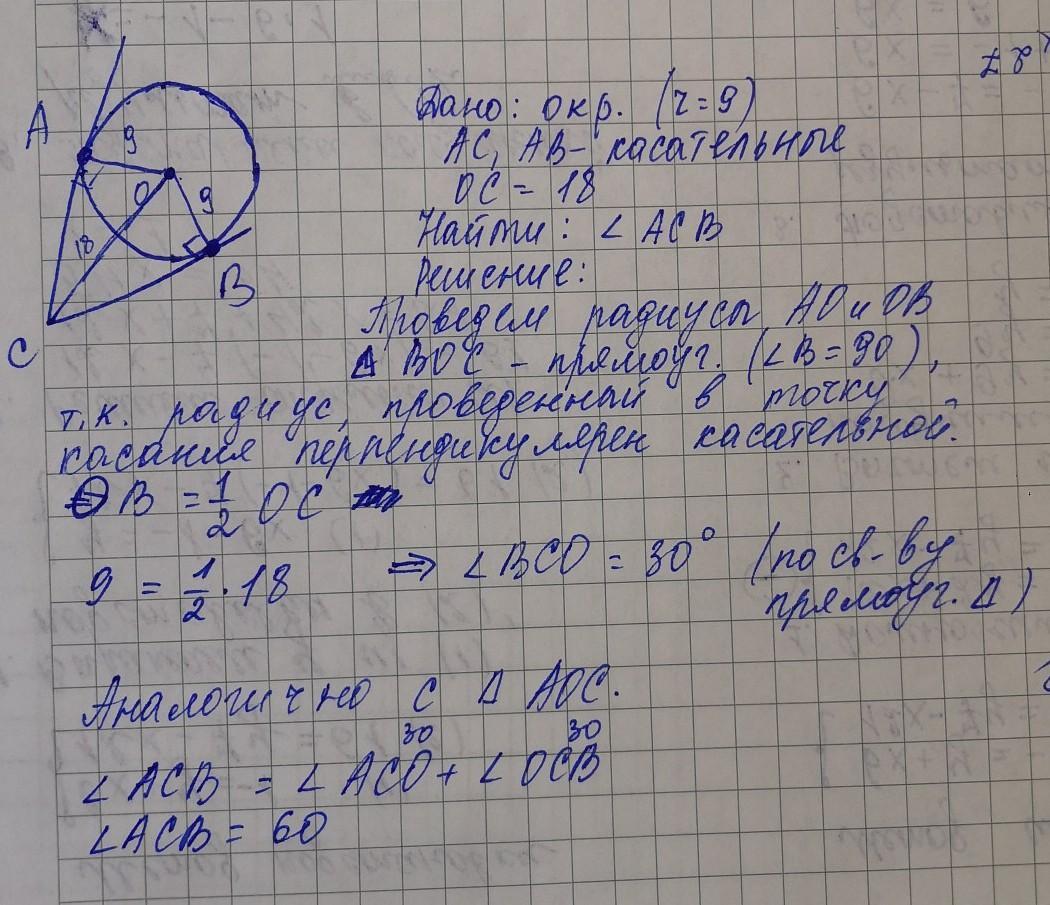 A
9
O
9
18
B
C
Дано: окр. (r=9)
AC, AB - касательные
OC = 18
Найти: ∠ ACB
Решение:
Проведем радиусы AO и OB
Δ BOC - прямоуг. (∠B = 90),
т.к. радиус, проведенный в точку
касания перпендикулярен касательной.
OB = 1/2 OC
9 = 1/2 · 18 ⇒ ∠BCO = 30° (по св-ву
прямоуг. Δ)
Аналогично с Δ AOC.
30 30
∠ ACB = ∠ ACO + ∠ OCB
∠ACB = 60